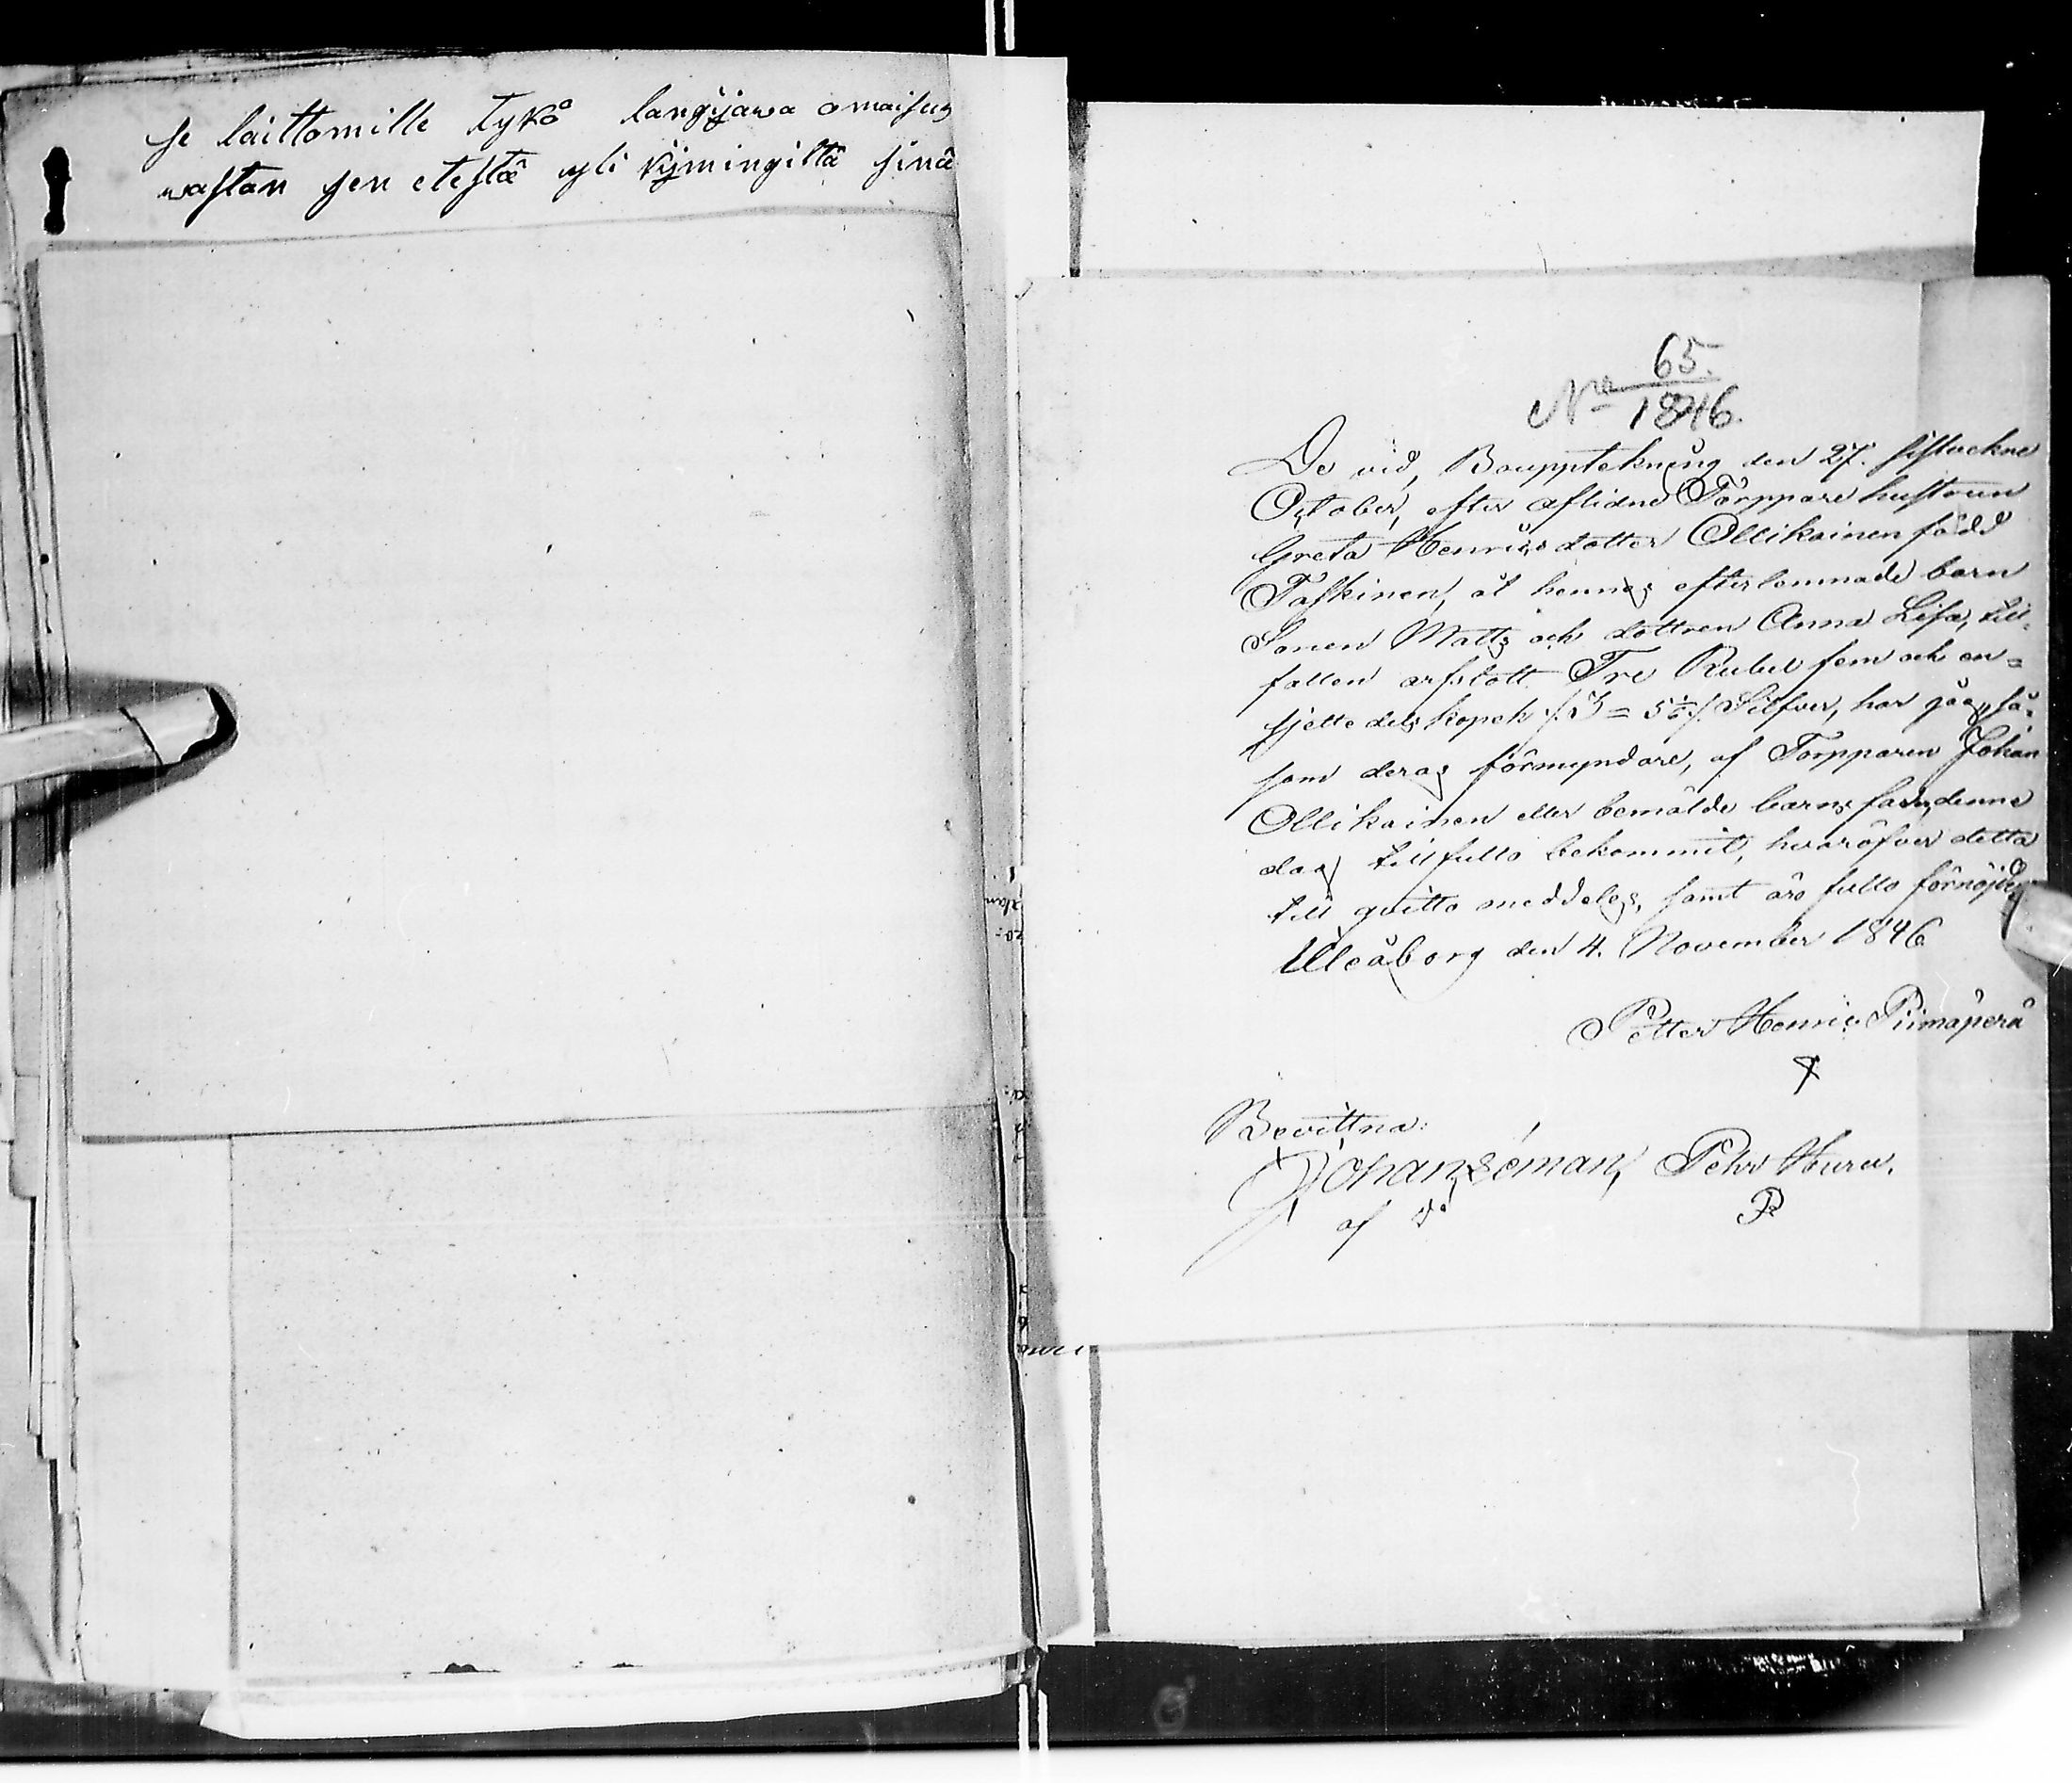 se laittomille tykö langijawa omaisus
wastan sen etestä yli kijmingiltä sinä
65.
No 1846.
De vid, Bouppteckning den 27. sistveckne
October, efter aflidne Torppare hustrun
Greta Henricsdotter Ollikainen född
Taskinen, åt hennes efterlemnade barn
Sonen Matts och dottren Anna Lisa, till-
fallen arfslott Tre Rubel fem och en=
sjette dels kopek /: 3 = 5 1/6 :/ Silfver, har jag, så-
som deras förmyndare, af Torpparen Johan
Ollikainen eller bemälde barns fader, denne
dag till fullo bekommit, hvaröfver detta
till qvitto meddeles, samt äro fullo förnöjde
Uleåborg den 4. November 1846
Petter Henric Piimäperä
Bevittna:
Johan Seman, Pehr Huru.
af
P